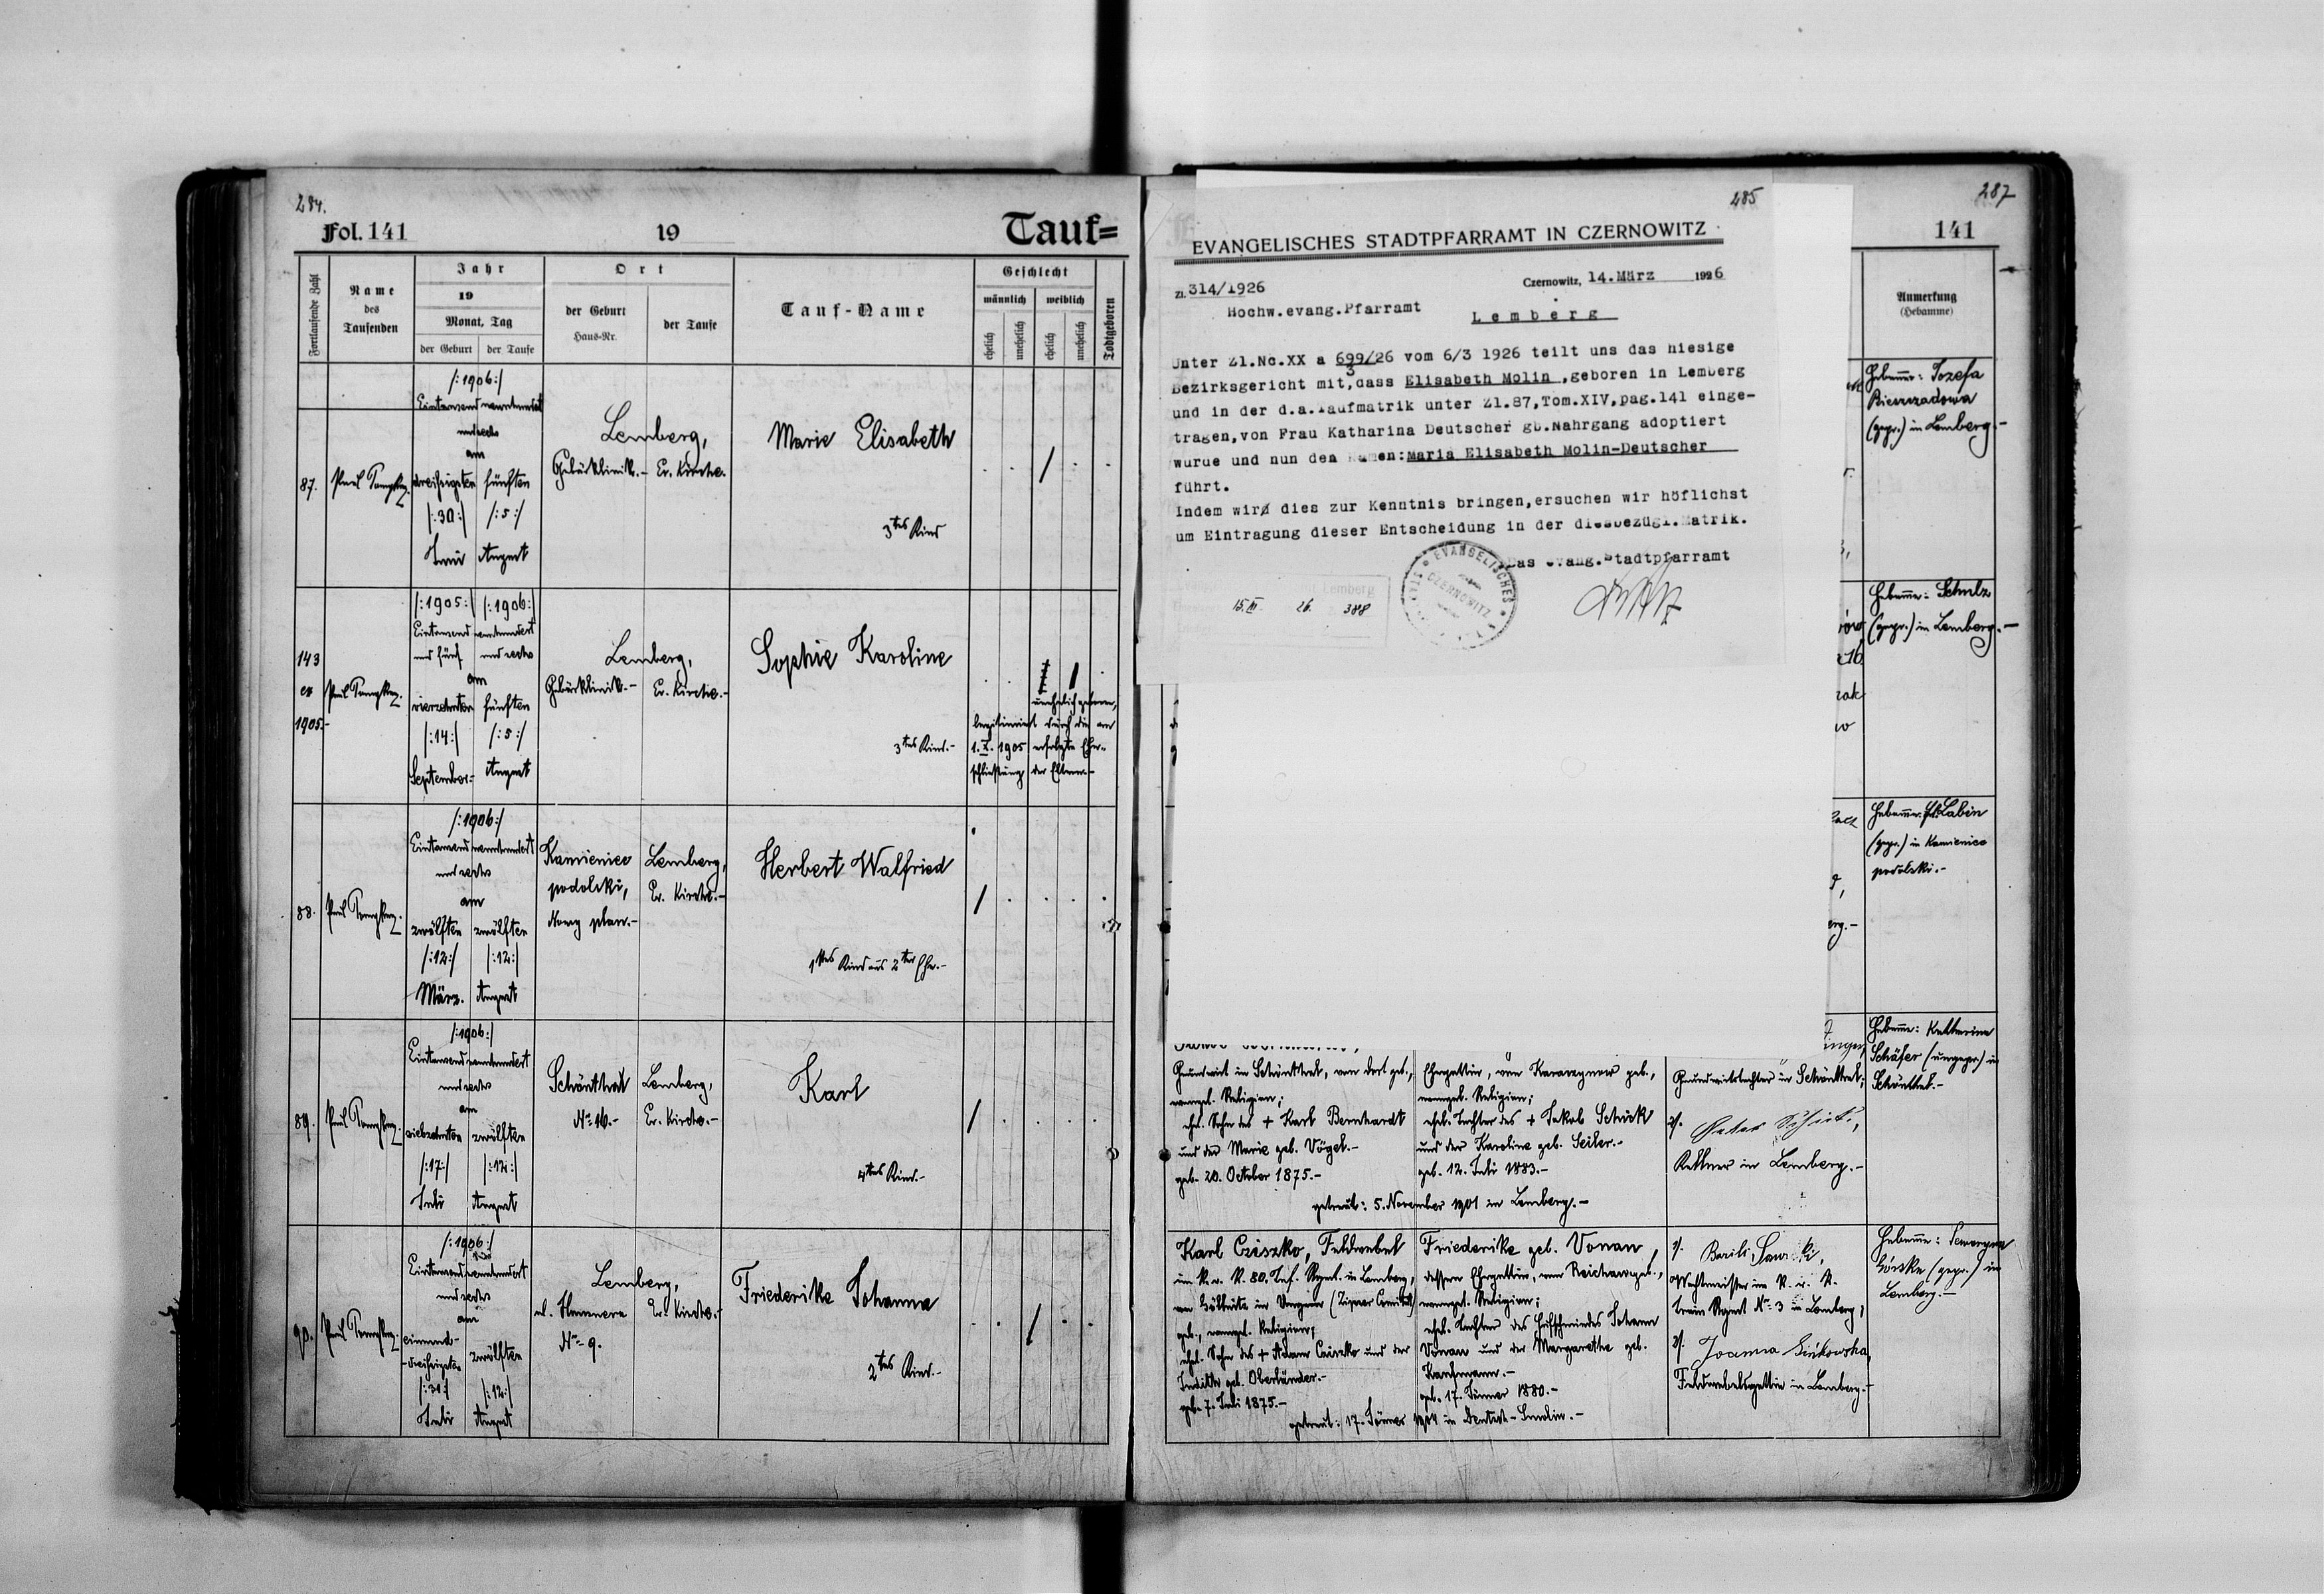 284.
Fol. 141
19
Tauf=
Fortlaufende Zahl
Name
des
Taufenden
Jahr
19
Monat, Tag
der Geburt
der Taufe
Ort
der Geburt
Haus-Nr.
der Taufe
Tauf-Name
Geschlecht
männlich
weiblich
ehelich
unehelich
ehelich
unehelich
Todtgeboren
/:1906:/
Eintausendneunhundert
und sechs
am
87.
dreißigsten
fünften
/:30:/
/:5:/
Juni
August
Lemberg,
Gebärklinik.-
Ev. Kirche.
Marie Elisabeth
3tes Kind
143
ex
1905-
/:1905:/
/:1906:/
Eintausend neunhundert
und fünf
und sechs
am
vierzehnten
fünften
/:14:/
/:5:/
September.
August
Lemberg,
Gebärklinik.-
Ev. Kirche.-
Sophie Karoline
3tes Kind.-
unehelich geboren,
legitimiert durch die am
1.X.1905 erfolgte Ehe-
schließung der Eltern.-
/:1906:/
Eintausendneunhundert
und sechs
am
88.
zwölften
zwölften
/:12:/
/:12:/
März.
August
Kamieniec
podolski,
Nowy plan.-
Lemberg,
Ev. Kirche.-
Herbert Walfried
1tes Kind aus 2ter Ehe.-
/:1906:/
Eintausendneunhundert
und sechs
am
89.
siebzehnten
zwölften
/:17:/
/:12:/
Juli
August
Schönthal
No 16.-
Lemberg,
Ev. Kirche.-
Karl
4tes Kind.-
/:1906:/
Eintausendneunhundert
und sechs
am
90.
einund-
-dreißigsten
zwölften
/:31:/
/:12:/
Juli
August
Lemberg,
No 9.
Ev. Kirche.-
Friederike Johanna
2tes Kind.-
285
EVANGELISCHES STADTPFARRAMT IN CZERNOWITZ
Zl. 314/1926
Czernowitz, 14.März 1926
Hochw.evang.Pfarramt
Lemberg
Unter Zl.Nc.XX a 699/26 vom 6/3 1926 teilt uns das hiesige
3
Bezirksgericht mit,dass Elisabeth Molin ,geboren in Lemberg
und in der d.a.Taufmatrik unter Zl.87,Tom.XIV,pag.141 einge-
tragen,von Frau Katharina Deutscher gb.Nahrgang adoptiert
wurde und nun den Namen:Maria Elisabeth Molin-Deutscher
führt.
Indem wir dies zur Kenntnis bringen,ersuchen wir höflichst
um Eintragung dieser Entscheidung in der diesbezügl.Matrik.
Das evang.Stadtpfarramt
EVANGELISCHES
CZERNOWITZ
Lemberg
15.III. 26. 388
287
141
Anmerkung
(Hebamme)
Hebamme: Jozefa
(gepr.) in Lemberg.-
Hebamme: Schulz
(gepr.) in Lemberg.-
Hebamme: Labin
(gepr.) in Kamieniec
podolski.-
Hebamme: Katharina
Schäfer (ungepr.) in
Schönthal.-
Grundwirt in Schönthal, von dort geb.,
evangel. Religion;
ehel. Sohn des + Karl Bernhardt
und der Marie geb. Vögel.-
geb. 20. October 1875.-
Ehegattin, von geb.,
evangel. Religion;
ehel. Tochter des + Jakob Schick
und der Karoline geb. Seiler.-
geb. 12. Juli 1883.-
getraut: 5. November 1901 in Lemberg.-
Grundwirtstochter in Schönthal;
2/.
Kellner in Lemberg.-
Karl Cziszko, Feldwebel
im k.u.k. 80. Inf. Regmt. in Lemberg,
geb., evangel. Religion;
ehel. Sohn des + Adam Cziszko und der
Judith geb. Oberländer.-
geb. 7. Juli 1875.-
Friederike geb. Vonau,
dessen Ehegattin, von Reichau geb.,
evangel. Religion;
ehel. Tochter des Hufschmiedes Johann
Vonau und der Margarethe geb.
Kaufmann.-
geb. 17. Jänner 1880.-
getraut: 17. Jänner 1904 in Deutsch-Smolin.-
1/.
Wachtmeister im k.u.k.
Train Regmt No 3 in Lemberg;
2/. Joanna Sinkowska,
Feldwebelsgattin in Lemberg.-
Hebamme: Seweryna
Górska (gepr.) in
Lemberg.-